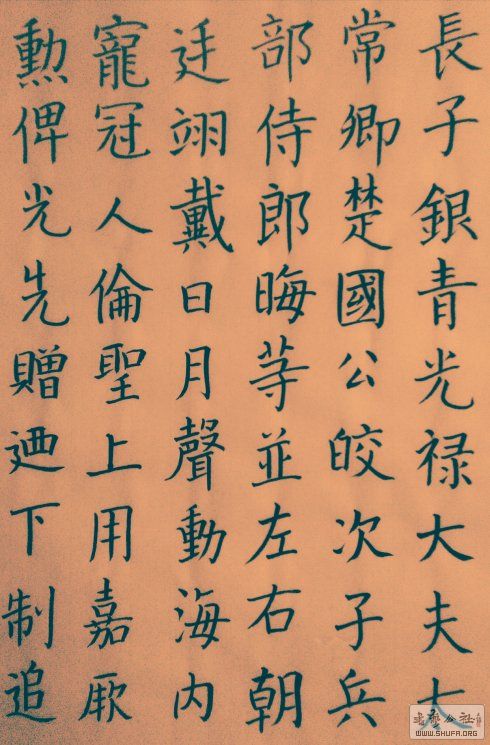 長子銀青光禄大夫太
常卿楚國公皎次子兵
部侍郎晦等並左右朝
廷翊戴日月聲動海内
寵冠人倫聖上用嘉厥
勲俾光先贈廼下制追
書藝公社
WWW.SHUFA.ORG